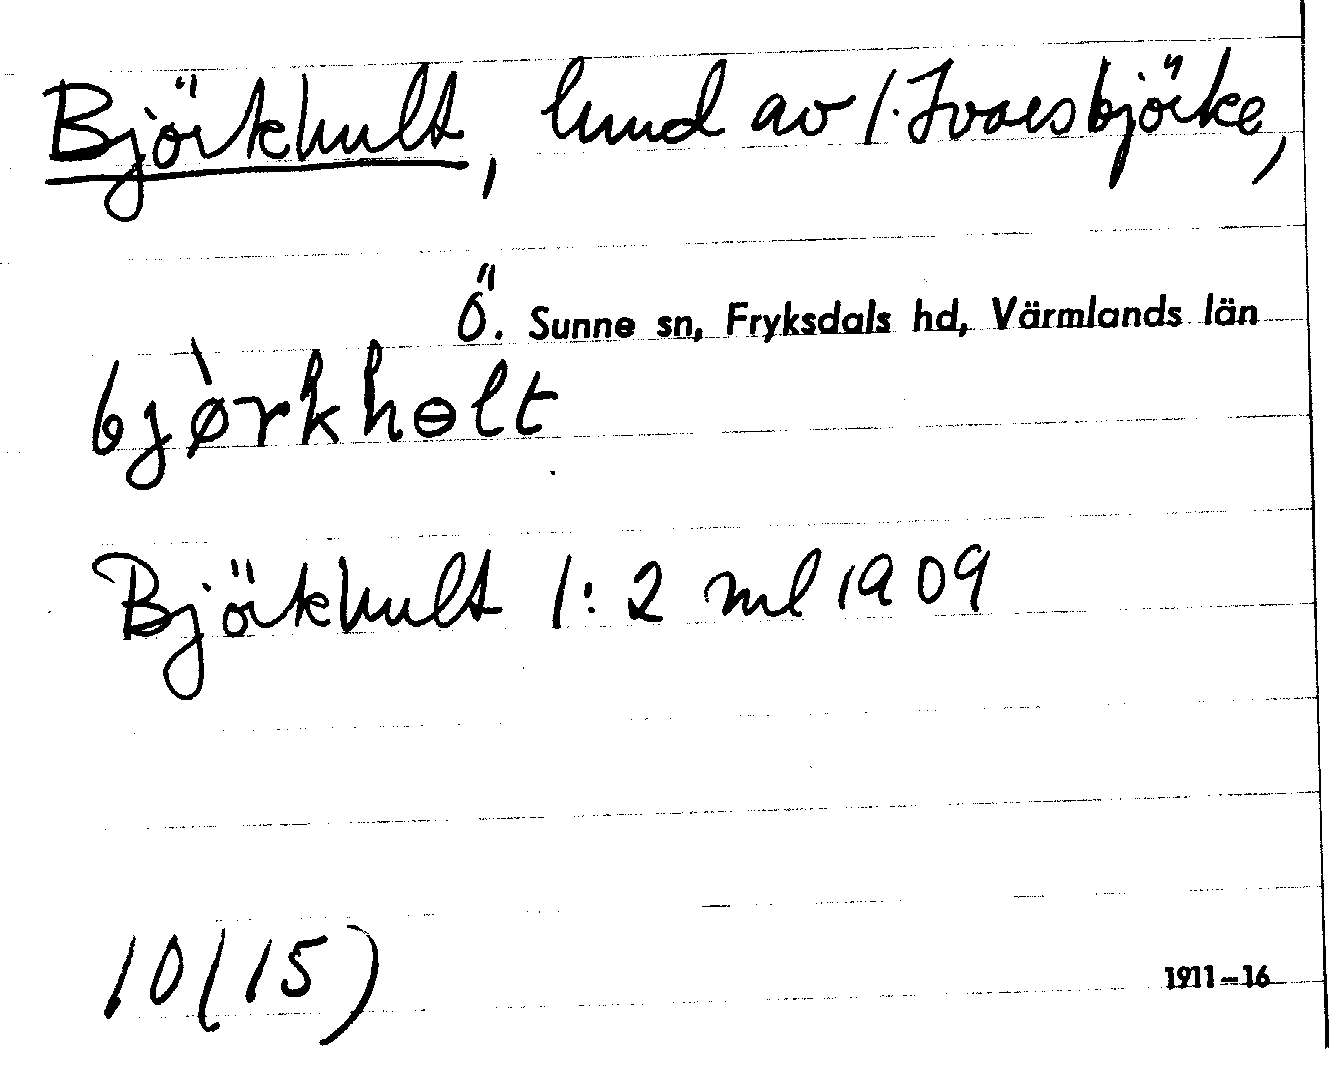 Björkhult, lund av 1. Ivarsbjörke,
Ö. Sunne sn, Fryksdals hd, Värmlands län
bjø̀rkhɵlt
Björkhult 1:2 ml 1909
10(15)
1911–16